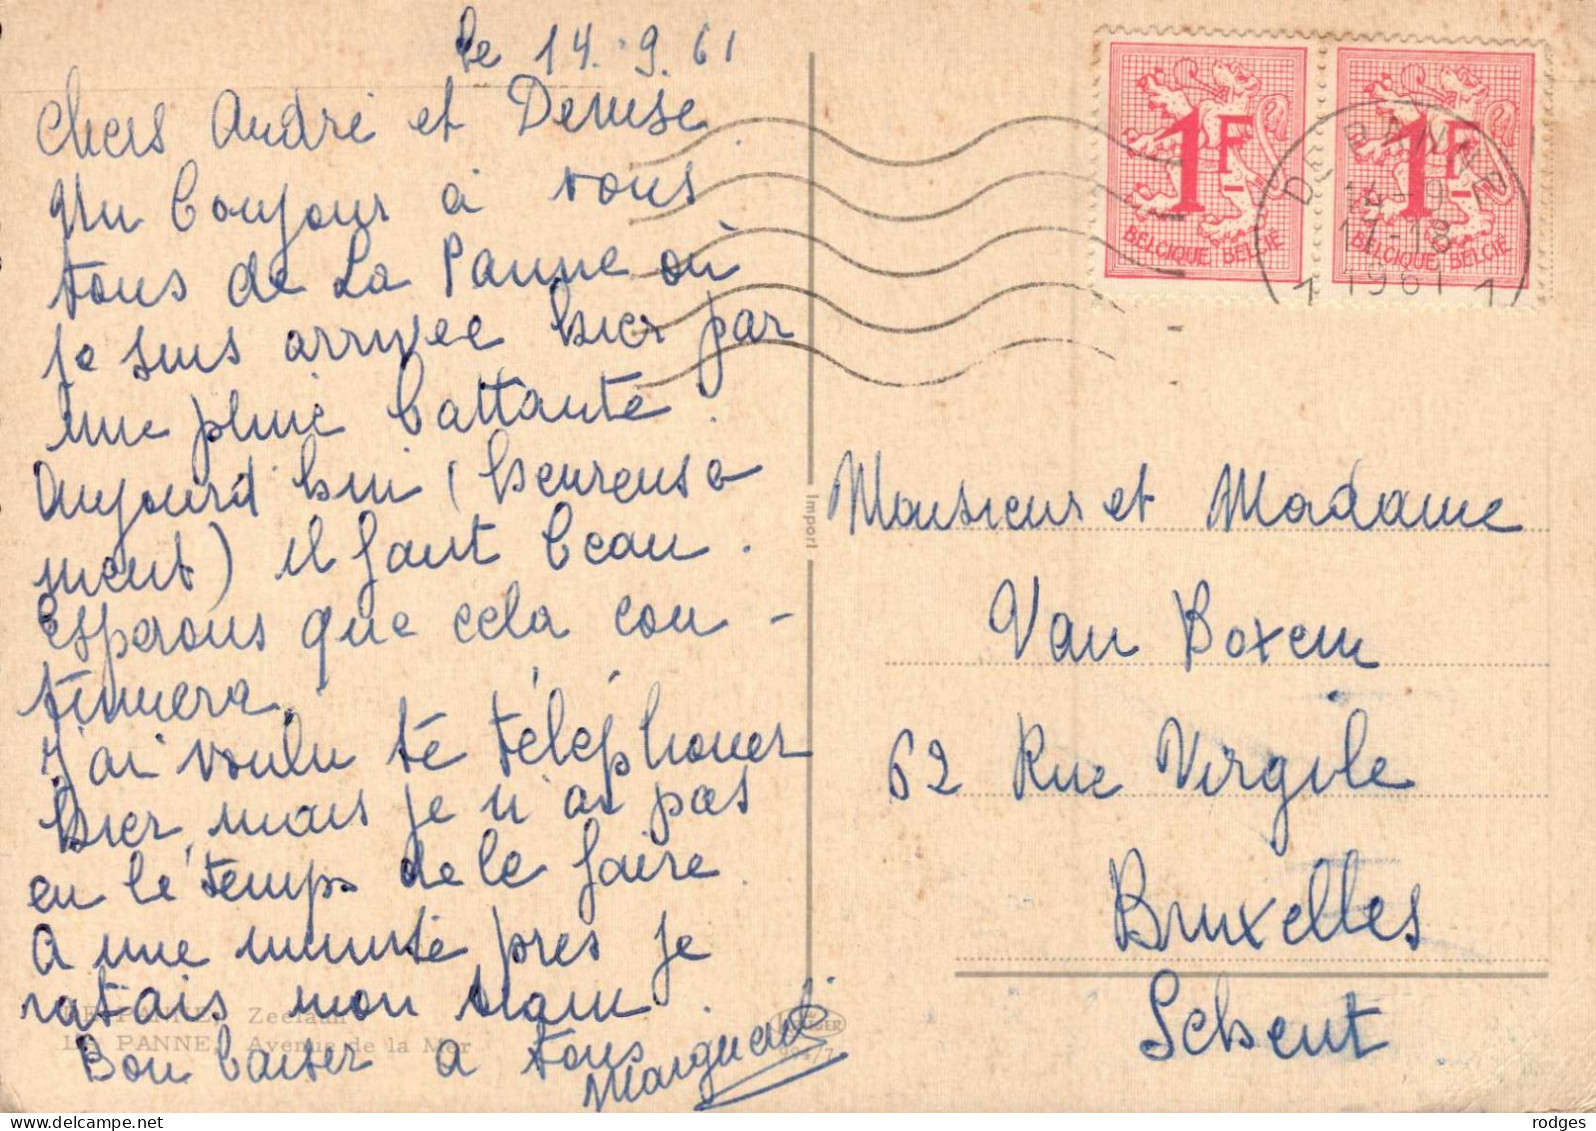 le 14.9.61
Chers André et Denise
Un bonjour à vous
tous de La Panne où
je suis arrivée hier par
une pluie battante.
Aujourd'hui (heureuse
ment) il faut beau.
Esperons que cela con-
tinuera.
J'ai voulu te téléphoner
hier, mais je n'ai pas
eu le temps de le faire.
A une minute près je
ratais mon tram.
Bon baiser a tous
Marguerite
DE PANNE. Zeelaan
LA PANNE. Avenue de la Mer
Import
1F
BELGIQUE BELGIE
1F
BELGIQUE BELGIE
DE PANNE
14-9
17-18
1961
1 1
Monsieur et Madame
Van Boxem
62 Rue Virgile
Bruxelles
Scheut
delcampe.net
rodges